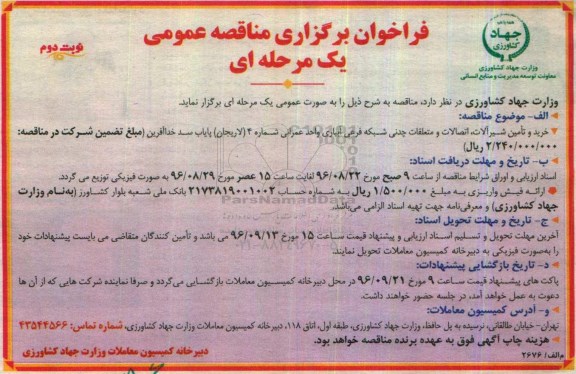 فراخوان برگزاری مناقصه عمومی
یک مرحله ای
نوبت دوم
جهاد
کشاورزی
وزارت جهاد کشاورزی
معاونت توسعه مدیریت و منابع انسانی
وزارت جهاد کشاورزی در نظر دارد، مناقصه به شرح ذیل را به صورت عمومی یک مرحله ای برگزار نماید.
الف- موضوع مناقصه:
خرید و تأمین شیرآلات، اتصالات و متعلقات چدنی شبکه فرعی آبیاری واحد عمرانی شماره ۴ (لاریجان) پایاب سد خداآفرین (مبلغ تضمین شرکت در مناقصه:
۲/۲۴۰/۰۰۰/۰۰۰ ریال)
ب- تاریخ و مهلت دریافت اسناد:
اسناد ارزیابی و اوراق شرایط مناقصه از ساعت ۹ صبح مورخ ۹۶/۰۸/۲۲ لغایت ساعت ۱۵ عصر مورخ ۹۶/۰۸/۲۹ به صورت فیزیکی توزیع می گردد.
ارائه فیش واریزی به مبلغ ۱/۵۰۰/۰۰۰ ریال به شماره حساب ۲۱۷۳۸۱۹۰۰۱۰۰۲ بانک ملی شعبه بلوار کشاورز (به نام وزارت
جهاد کشاورزی) و معرفی‌نامه جهت تهیه اسناد الزامی می‌باشد.
ج- تاریخ و مهلت تحویل اسناد:
آخرین مهلت تحویل و تسلیم اسناد ارزیابی و پیشنهاد قیمت ساعت ۱۵ مورخ ۹۶/۰۹/۱۳ می باشد و تأمین کنندگان متقاضی می بایست پیشنهادات خود
را به‌صورت فیزیکی به دبیرخانه کمیسیون معاملات تحویل نمایند.
د- تاریخ بازگشایی پیشنهادات:
پاکت های پیشنهاد قیمت ساعت ۹ مورخ ۹۶/۰۹/۲۱ در محل دبیرخانه کمیسیون معاملات بازگشایی می‌گردد و صرفا نماینده شرکت هایی که از آن ها
دعوت به عمل خواهد آمد، در جلسه حضور خواهند داشت.
و- آدرس کمیسیون معاملات:
تهران- خیابان طالقانی، نرسیده به پل حافظ، وزارت جهاد کشاورزی، طبقه اول، اتاق ۱۱۸، دبیرخانه کمیسیون معاملات وزارت جهاد کشاورزی، شماره تماس: ۴۳۵۴۴۵۶۶
هزینه چاپ آگهی فوق به عهده برنده مناقصه خواهد بود.
دبیرخانه کمیسیون معاملات وزارت جهاد کشاورزی
م‌الف/ ۲۶۷۶
ParsNamadData